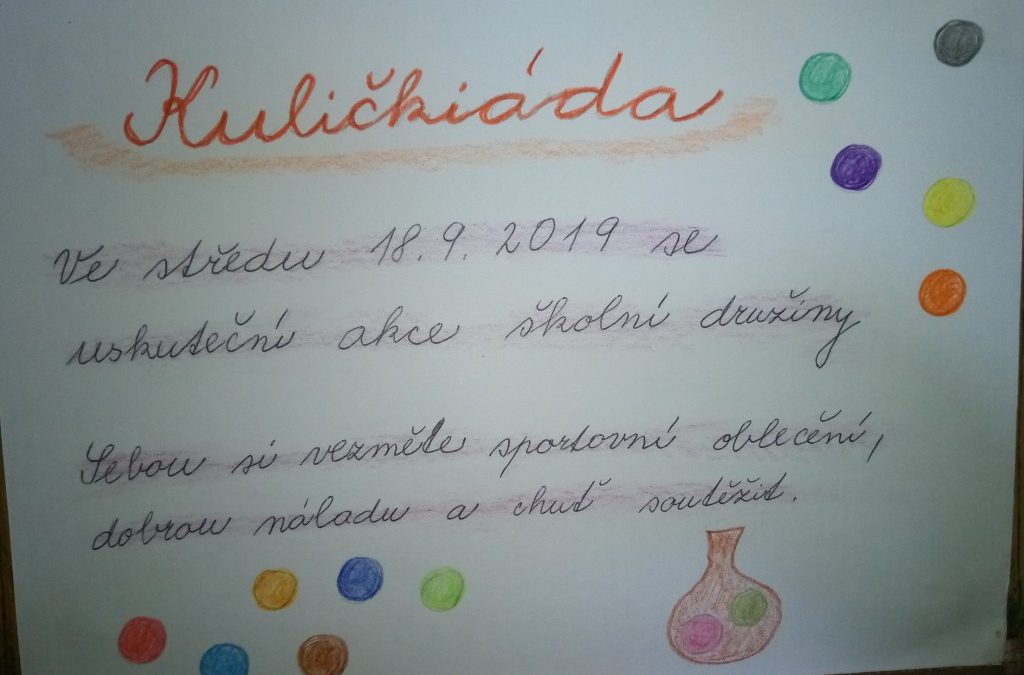 Kuličkiáda
Ve středu 18.9.2019 se
uskuteční akce školní družiny
Sebou si vezměte sportovní oblečění,
dobrou náladu a chuť soutěžit.